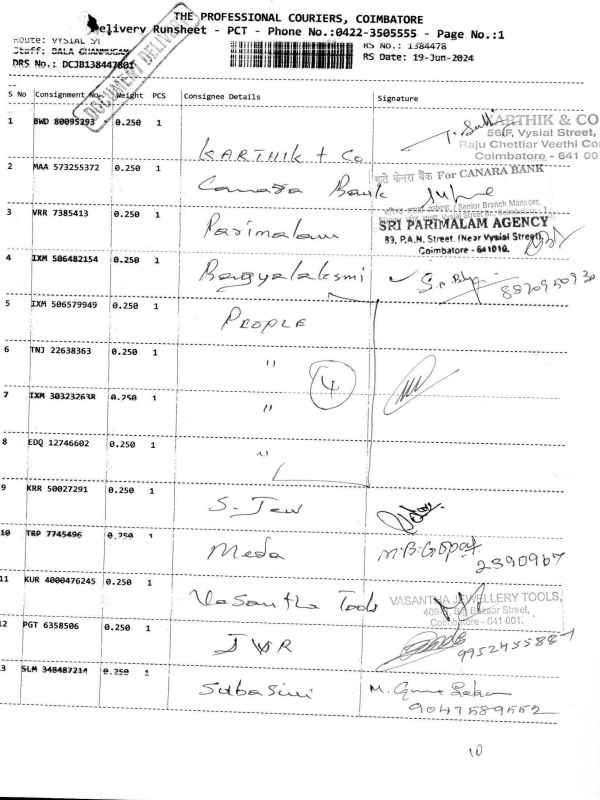 THE PROFESSIONAL COURIERS, COIMBATORE
Delivery Runsheet - PCT - Phone No.:0422-3505555 - Page No.:1
Route: VYSIAL ST
RS No.: 1384478
Staff: BALA CHANMUGAM
RS Date: 19-Jun-2024
DRS No.: DCJB138447801
DOCUMENT DELIVERY
S No Consignment No. Weight PCS Consignee Details Signature
1 BWD 80095293 0.250 1 KARTHIK + Co
KARTHIK & CO
56/F, Vysial Street,
Raju Chettiar Veethi Co
Coimbatore - 641 00
2 MAA 573255372 0.250 1 Canara Bank
कृते केनरा बैंक For CANARA BANK
Senior Branch Manager,
3 VRR 7385413 0.250 1 Parimalam
SRI PARIMALAM AGENCY
89, P.A.N. Street, (Near Vysial Street),
Coimbatore - 641010.
4 IXM 506482154 0.250 1 Bagyalaksmi
5 IXM 506579949 0.250 1 PEOPLE
6 TNJ 22638363 0.250 1 "
4
7 IXM 303232638 0.250 1 "
8 EDQ 12746602 0.250 1 "
9 KRR 50027291 0.250 1 S. Jew
10 TRP 7745496 0.250 1 Meda M.B. Gopal
2390967
11 KUR 4000476245 0.250 1 Vasantha Tools
VASANTHA JEWELLERY TOOLS,
409, Big Bazaar Street,
Coimbatore - 641 001.
12 PGT 6358506 0.250 1 JVR
13 SLM 348487214 0.250 1 Subasini
9047589552
10